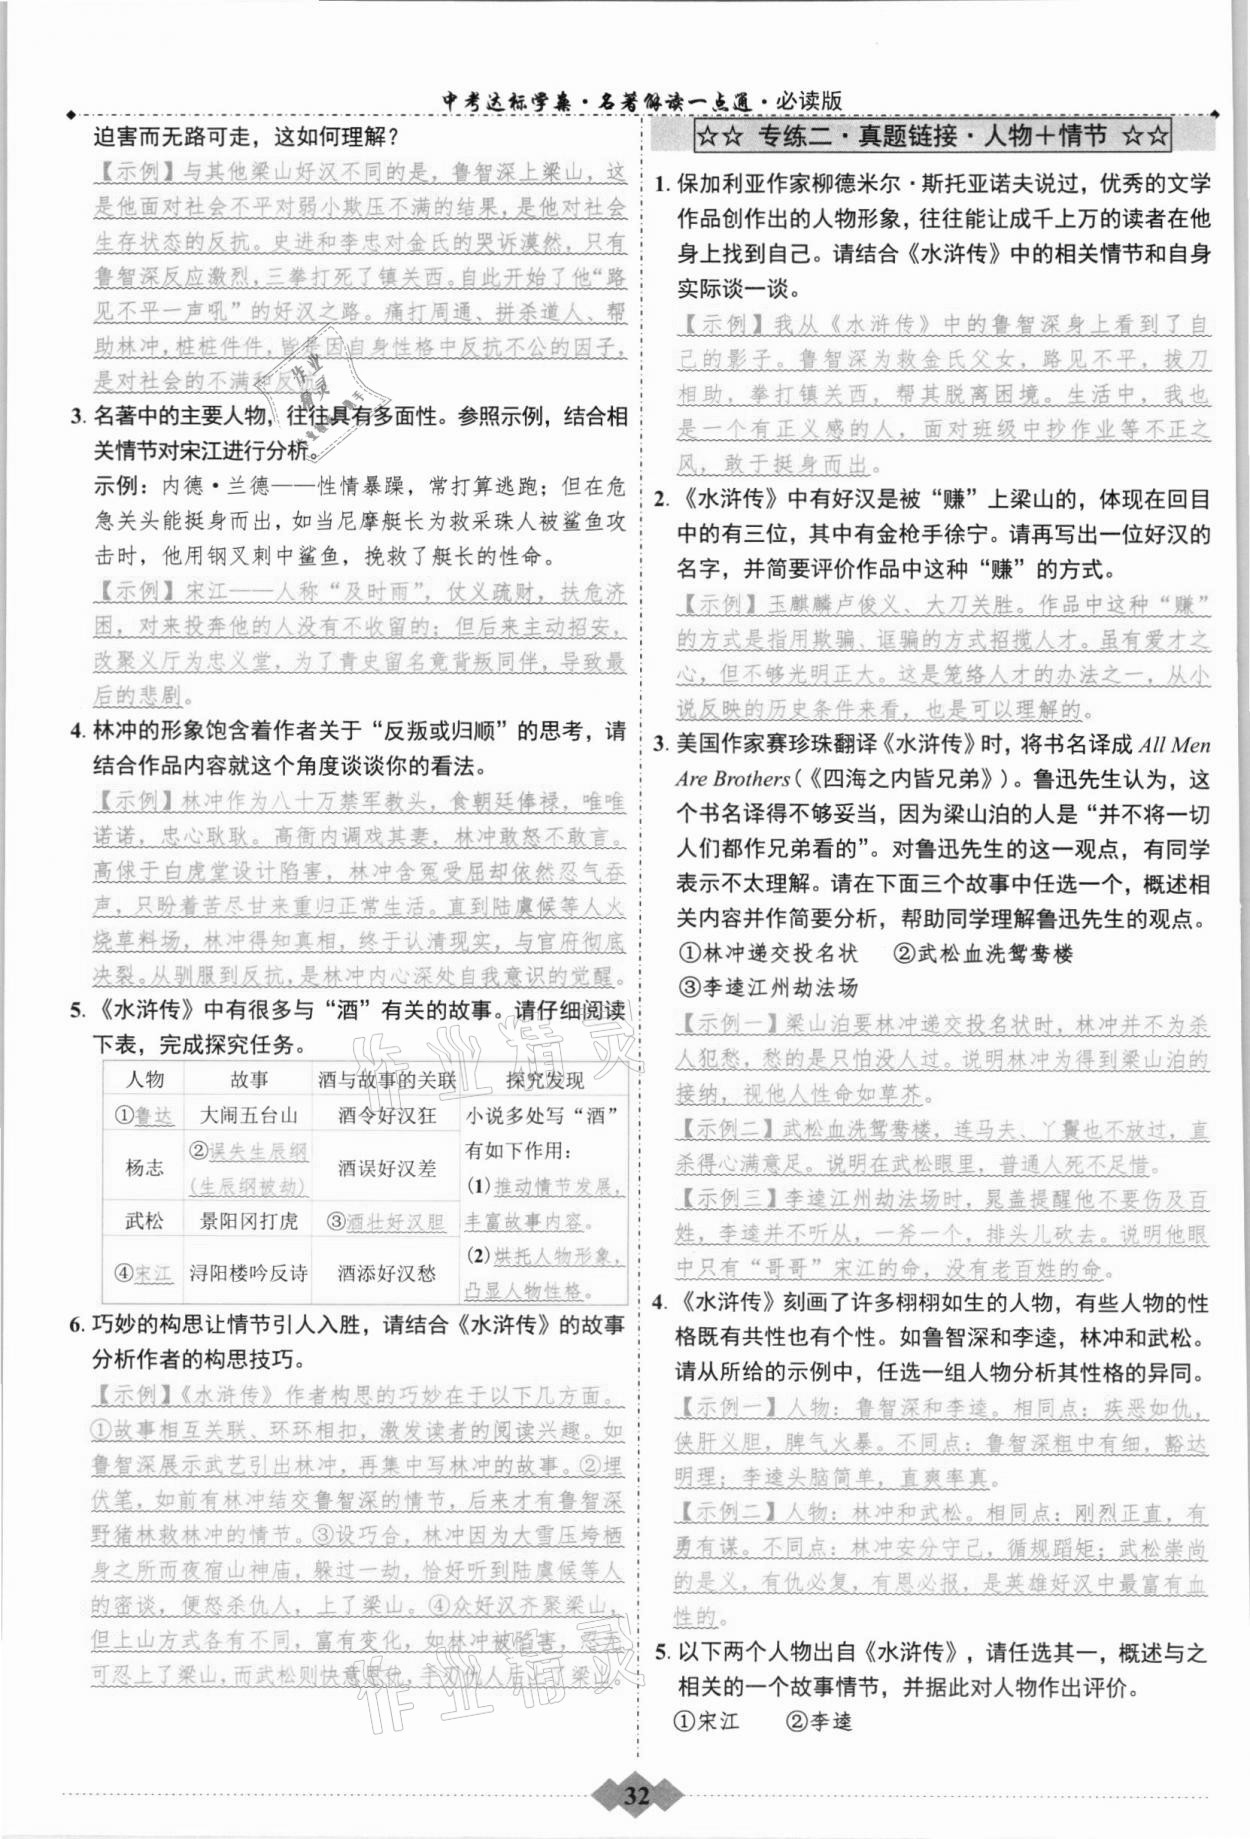 中考达标学案·名著解读一点通·必读版
迫害而无路可走，这如何理解？
【示例】与其他梁山好汉不同的是，鲁智深上梁山，这
是他面对社会不平对弱小欺压不满的结果，是他对社会
生存状态的反抗。史进和李忠对金氏的哭诉漠然，只有
鲁智深反应激烈，三拳打死了镇关西。自此开始了他“路
见不平一声吼”的好汉之路。痛打周通、拼杀道人、帮
助林冲，桩桩件件，皆是因自身性格中反抗不公的因子，
是对社会的不满和反抗。
3. 名著中的主要人物，往往具有多面性。参照示例，结合相
关情节对宋江进行分析。
示例：内德·兰德——性情暴躁，常打算逃跑；但在危
急关头能挺身而出，如当尼摩艇长为救采珠人被鲨鱼攻
击时，他用钢叉刺中鲨鱼，挽救了艇长的性命。
【示例】宋江——人称“及时雨”，仗义疏财，扶危济
困，对来投奔他的人没有不收留的；但后来主动招安，
改聚义厅为忠义堂，为了青史留名竟背叛同伴，导致最
后的悲剧。
4. 林冲的形象饱含着作者关于“反叛或归顺”的思考，请
结合作品内容就这个角度谈谈你的看法。
【示例】林冲作为八十万禁军教头，食朝廷俸禄，唯唯
诺诺，忠心耿耿。高衙内调戏其妻，林冲敢怒不敢言。
高俅于白虎堂设计陷害，林冲含冤受屈却依然忍气吞
声，只盼着苦尽甘来重归正常生活。直到陆虞候等人火
烧草料场，林冲得知真相，终于认清现实，与官府彻底
决裂。从驯服到反抗，是林冲内心深处自我意识的觉醒。
5. 《水浒传》中有很多与“酒”有关的故事。请仔细阅读
下表，完成探究任务。
人物 故事 酒与故事的关联 探究发现
①鲁达 大闹五台山 酒令好汉狂 小说多处写“酒”
有如下作用：
杨志 ②误失生辰纲
(生辰纲被劫) 酒误好汉差 (1)推动情节发展，
武松 景阳冈打虎 ③酒壮好汉胆 丰富故事内容。
④宋江 浔阳楼吟反诗 酒添好汉愁 (2)烘托人物形象，
凸显人物性格。
6. 巧妙的构思让情节引人入胜，请结合《水浒传》的故事
分析作者的构思技巧。
【示例】《水浒传》作者构思的巧妙在于以下几方面。
①故事相互关联、环环相扣，激发读者的阅读兴趣。如
鲁智深展示武艺引出林冲，再集中写林冲的故事。②埋
伏笔，如前有林冲结交鲁智深的情节，后来才有鲁智深
野猪林救林冲的情节。③设巧合，林冲因为大雪压垮栖
身之所而夜宿山神庙，躲过一劫，恰好听到陆虞候等人
的密谈，便怒杀仇人，上了梁山。④众好汉齐聚梁山，
但上山方式各有不同，富有变化，如林冲被陷害，忍无
可忍上了梁山，而武松则快意恩仇，手刃仇人后上了梁山。
☆☆ 专练二·真题链接·人物＋情节 ☆☆
1. 保加利亚作家柳德米尔·斯托亚诺夫说过，优秀的文学
作品创作出的人物形象，往往能让成千上万的读者在他
身上找到自己。请结合《水浒传》中的相关情节和自身
实际谈一谈。
【示例】我从《水浒传》中的鲁智深身上看到了自
己的影子。鲁智深为救金氏父女，路见不平，拔刀
相助，拳打镇关西，帮其脱离困境。生活中，我也
是一个有正义感的人，面对班级中抄作业等不正之
风，敢于挺身而出。
2. 《水浒传》中有好汉是被“赚”上梁山的，体现在回目
中的有三位，其中有金枪手徐宁。请再写出一位好汉的
名字，并简要评价作品中这种“赚”的方式。
【示例】玉麒麟卢俊义、大刀关胜。作品中这种“赚”
的方式是指用欺骗、诓骗的方式招揽人才。虽有爱才之
心，但不够光明正大。这是笼络人才的办法之一，从小
说反映的历史条件来看，也是可以理解的。
3. 美国作家赛珍珠翻译《水浒传》时，将书名译成 All Men
Are Brothers（《四海之内皆兄弟》）。鲁迅先生认为，这
个书名译得不够妥当，因为梁山泊的人是“并不将一切
人们都作兄弟看的”。对鲁迅先生的这一观点，有同学
表示不太理解。请在下面三个故事中任选一个，概述相
关内容并作简要分析，帮助同学理解鲁迅先生的观点。
①林冲递交投名状 ②武松血洗鸳鸯楼
③李逵江州劫法场
【示例一】梁山泊要林冲递交投名状时，林冲并不为杀
人犯愁，愁的是只怕没人过。说明林冲为得到梁山泊的
接纳，视他人性命如草芥。
【示例二】武松血洗鸳鸯楼，连马夫、丫鬟也不放过，直
杀得心满意足。说明在武松眼里，普通人死不足惜。
【示例三】李逵江州劫法场时，晁盖提醒他不要伤及百
姓，李逵并不听从，一斧一个，排头儿砍去。说明他眼
中只有“哥哥”宋江的命，没有老百姓的命。
4. 《水浒传》刻画了许多栩栩如生的人物，有些人物的性
格既有共性也有个性。如鲁智深和李逵，林冲和武松。
请从所给的示例中，任选一组人物分析其性格的异同。
【示例一】人物：鲁智深和李逵。相同点：疾恶如仇，
侠肝义胆，脾气火暴。不同点：鲁智深粗中有细，豁达
明理；李逵头脑简单，直爽率真。
【示例二】人物：林冲和武松。相同点：刚烈正直，有
勇有谋。不同点：林冲安分守己，循规蹈矩；武松崇尚
的是义，有仇必复，有恩必报，是英雄好汉中最富有血
性的。
5. 以下两个人物出自《水浒传》，请任选其一，概述与之
相关的一个故事情节，并据此对人物作出评价。
①宋江 ②李逵
32
作业精灵
作业精灵